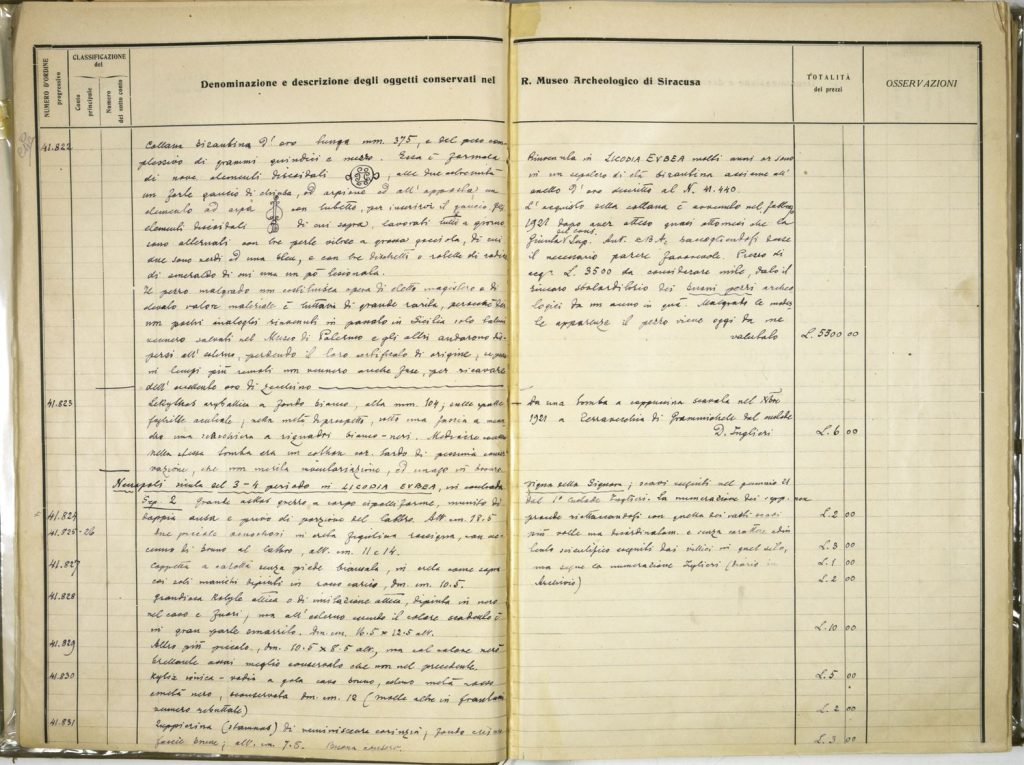 NUMERO D'ORDINE progressivo
CLASSIFICAZIONE del
Conto principale
Numero del sotto conto
Denominazione e descrizione degli oggetti conservati nel R. Museo Archeologico di Siracusa
TOTALITÀ dei prezzi
OSSERVAZIONI
41.822
Collana bizantina d'oro lunga mm. 375, e del peso com-
plessivo di grammi quindici e mezzo. Essa è formata
di nove elementi discoidali, alle due estremità
un forte gancio di chiusa, ad arpione ed all'opposto un
elemento ad arpa con tubetto, per inserirvi il gancio. Gli
elementi discoidali di cui sopra, lavorati tutti a giorno
sono alternati con tre perle vitree a grossa gocciola, di cui
due sono verdi ed una bleu, e con tre dischetti o rotelle di radice
di smeraldo di cui una un pò lesionata.
Il pezzo malgrado non costituisca opera di eletto magistero e di
elevato valore materiale è tuttavia di grande rarità, perocchè dei
non pochi analoghi rinvenuti in passato in Sicilia solo taluni
vennero salvati nel Museo di Palermo e gli altri andarono dis-
persi all'estero, perdendo il loro certificato di origine,
in tempi più remoti non vennero anche fuse, per ricavare
dell'eccellente oro di zecchino
Rinvenuta in LICODIA EVBEA molti anni or sono
in un sepolcro di età bizantina assieme all'
anello d'oro descritto al N. 41.440.
L'acquisto della collana è avvenuto nel febbraio
1921 dopo aver atteso quasi otto mesi che la
Giunta del Cons. Sup. Ant. e B.A. desse
il necessario parere favorevole. Prezzo di
acq. L. 3500 da considerare mite, dato il
rincaro sbalorditorio dei buoni pezzi archeo-
logici da un anno in quà. Malgrado le modes-
te apparenze il pezzo viene oggi da me
valutato L. 5500 00
41.823
Lekythos aryballica a fondo bianco, alta mm. 104; sulle spalle
foglioline acutiale, nella metà di prospetto, sotto una fascia a mean-
dro una scacchiera a riquadri bianco-neri. Medesimamente
nella stessa tomba era un cothon cor. tardo di pessima conser-
vazione, che non merita inventariazione, ed un ago in bronzo
Da una tomba a cappuccina scavata nel Nbre
1921 a Terravecchia di Grammichele dal custode
D. Inglieri L. 6 00
Necropoli sicula del 3-4 periodo in LICODIA EVBEA, in contrada
Vigna della Signora; scavi eseguiti nel gennaio 21
Sep. 2 Grande askos grezzo a corpo cipolliforme, munito di
dal 1° Custode Inglieri. La numerazione dei sepp. non
41.824
doppia ansa e privo di porzione del labbro. Alt. cm. 18.5
procede riattaccandosi con quella dei vecchi scavi L. 2 00
41.825-26
Due piccole oinochoai in creta figulina rossigna, con ac-
più volte ma disordinatam. e senza carattere ed in-
cenno di bruno al labbro, alt. cm. 11 e 14.
tento scientifico eseguiti dai villici in quel sito, L. 3 00
41.827
Coppetta a calotta senza piede biansata, in creta come sopra
ma segue la numerazione Inglieri (diario in L. 1 00
coi soli manichi dipinti in rosso carico, dm. cm. 10.5.
Archivio) L. 2 00
41.828
Grandiosa kotyle attica o di imitazione attica, dipinta in nero
nel cavo e fuori, ma all'esterno essendo il colore scadente è
in gran parte smarrito. dm. cm. 16.5 x 12.5 alt. L. 10 00
41.829
Altro più piccolo, dm. 10.5 x 8.5 alt., ma col colore nero
brillante assai meglio conservato che non nel precedente.
41.830
Kylix ionica-rodia a gola cavo bruno, esterno metà rosso L. 5 00
e metà nero, sconservata dm. cm. 12 (molte altre in frantumi
vennero ributtate) L. 2 00
41.831
Zuppierina (stamnos) di reminiscenza corinzia; fondo
fascie brune; alt. cm. 7.5. Buona conserv. L. 3 00